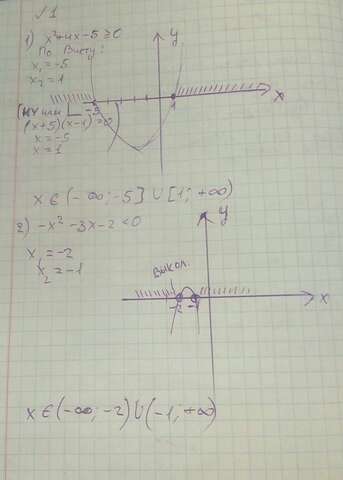 √1
1) x²+4x-5≥0
По Виету:
x₁=-5
x₂=1
(x+5)(x-1)=0
x=-5
x=1
y
-5
1
x
x∈(-∞;-5]∪[1;+∞)
2) -x²-3x-2<0
x₁=-2
x₂=-1
y
Выкол.
-2 -1
x
x∈(-∞;-2)∪(-1;+∞)